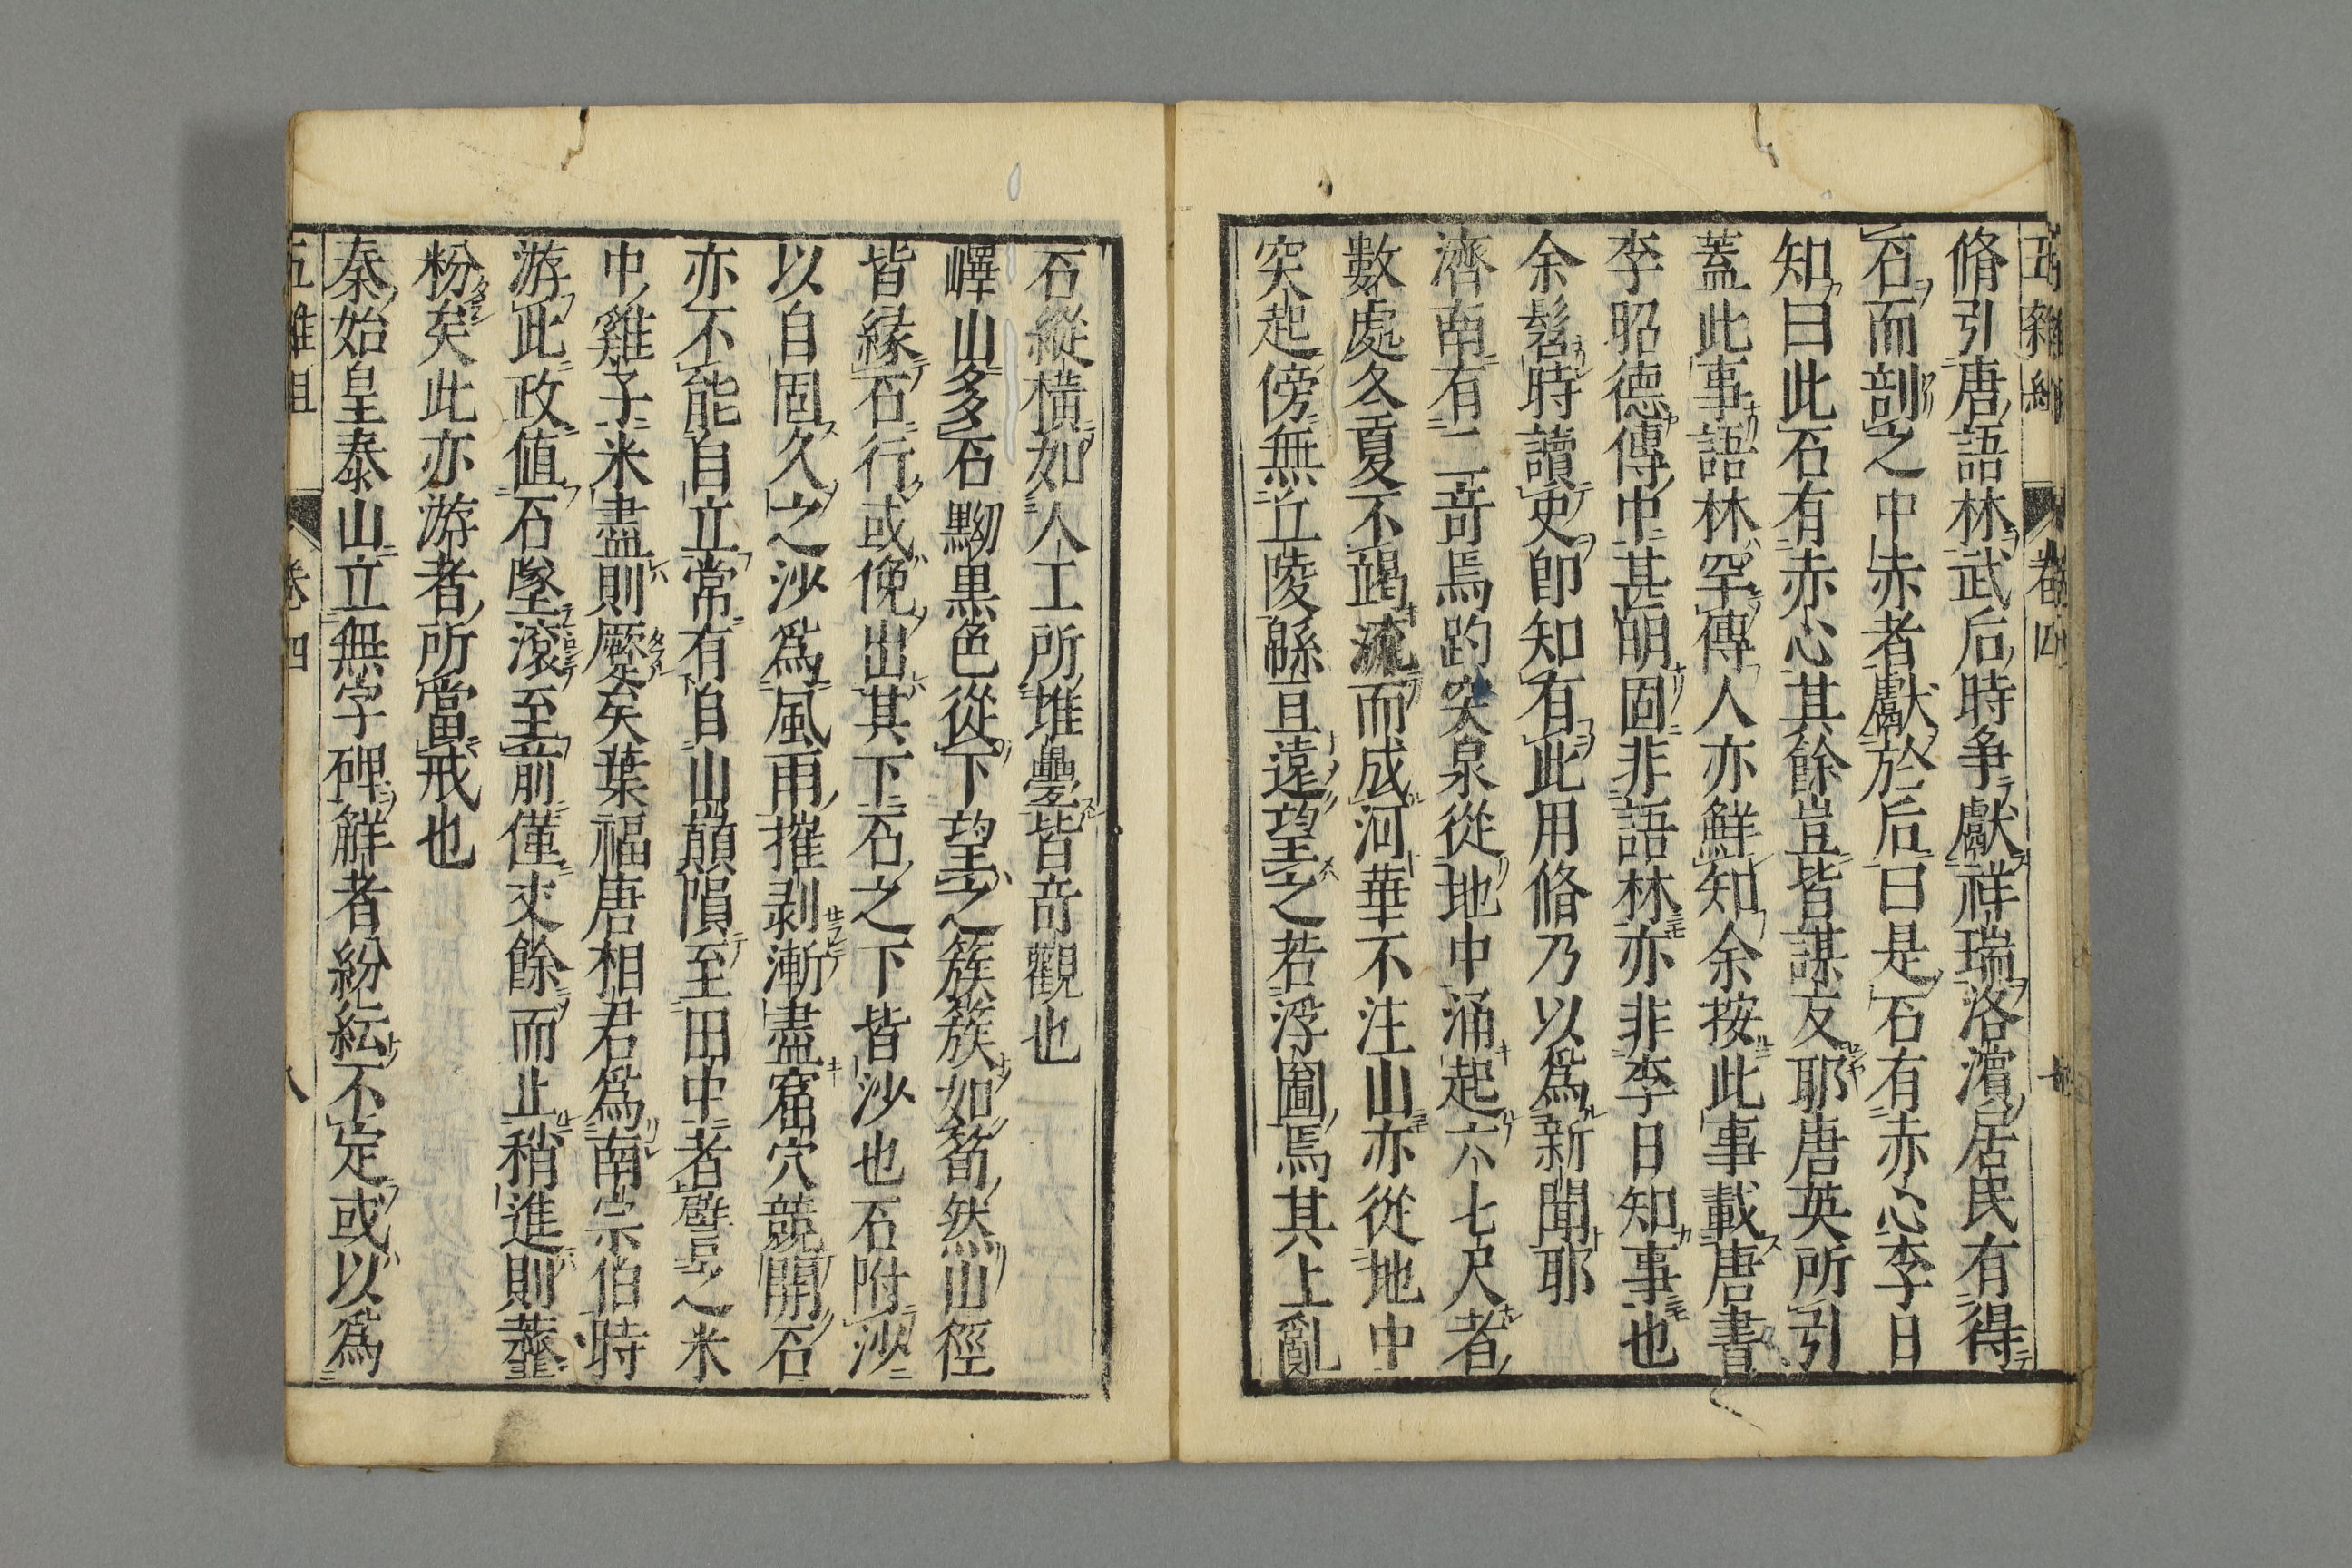 五雜組 卷四
脩引唐語林武后時爭獻祥瑞洛濱居民有得
石而剖之中赤者獻於后曰是石有赤心李日
知曰此石有赤心其餘豈皆謀反耶唐英所引
蓋此事語林罕傳人亦鮮知余按此事載唐書
李昭德傳中甚明固非語林亦非李日知事也
余髫時讀史即知有此用脩乃以為新聞耶
濟南有二奇焉趵突泉從地中涌起六七尺者
數處冬夏不竭流而成河華不注山亦從地中
突起傍無丘陵緜亘遠望之若浮圖焉其上亂
石縱橫如人工所堆壘皆奇觀也
嶧山多石黝黒色從下望之簇簇如筍然山徑
皆緣石行或俛出其下石之下皆沙也石附沙
以自固久之沙為風雨摧剥漸盡窟穴競開石
亦不能自立常有自山巔隕至田中者譬之米
中雞子米盡則壓矣葉福唐相君為南宗伯時
游此政值石墜滚至前僅丈餘而止稍進則虀
粉矣此亦游者所當戒也
秦始皇泰山立無字碑解者紛紜不定或以為
五雜組 卷四 八